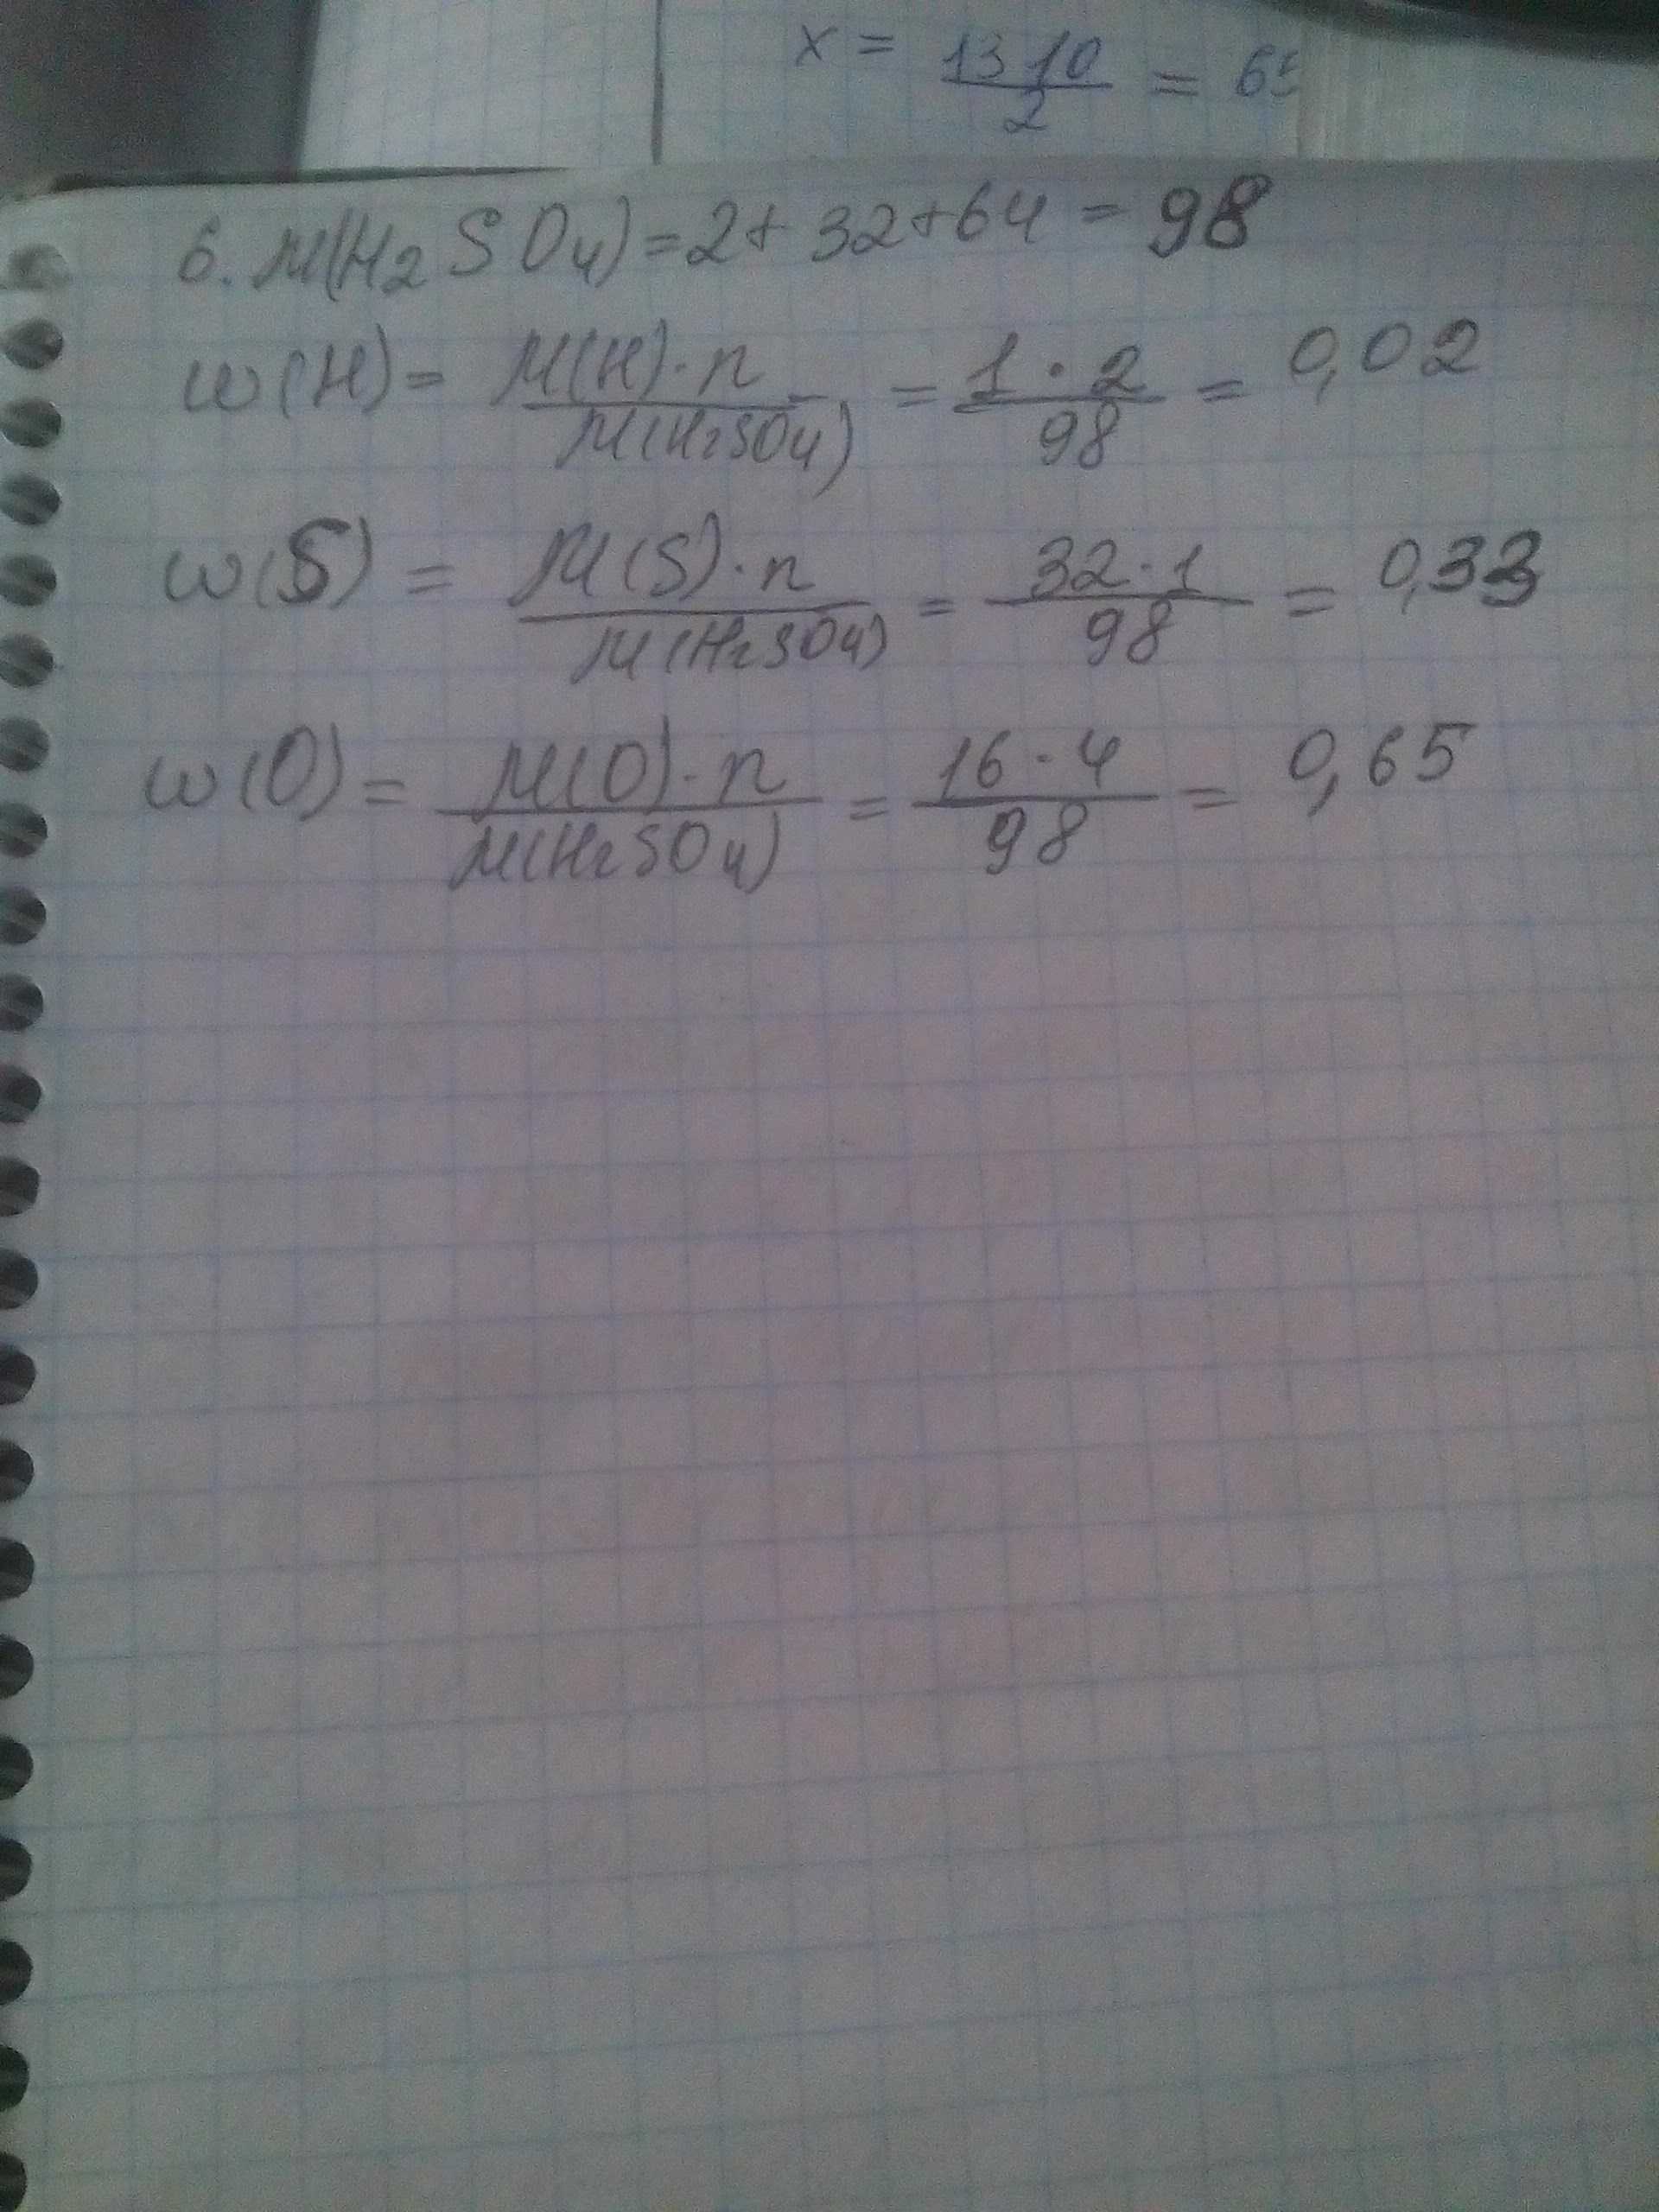 x = 13 10 / 2 = 65
6. M(H₂SO₄) = 2 + 32 + 64 = 98
w(H) = M(H)·n / M(H₂SO₄) = 1·2 / 98 = 0,02
w(S) = M(S)·n / M(H₂SO₄) = 32·1 / 98 = 0,33
w(O) = M(O)·n / M(H₂SO₄) = 16·4 / 98 = 0,65